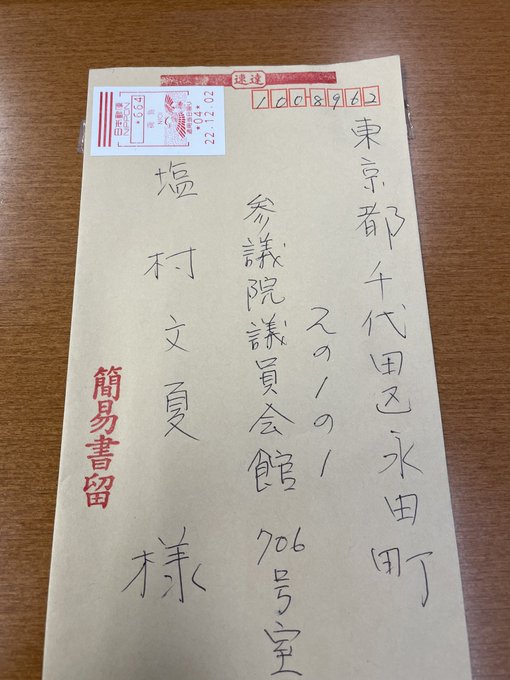 速達
1008962
日本郵便
NIPPON
*664
*04*
22.12.02
東京都千代田区永田町
2の1の1
参議院議員会館 706号室
塩村文夏 様
簡易書留